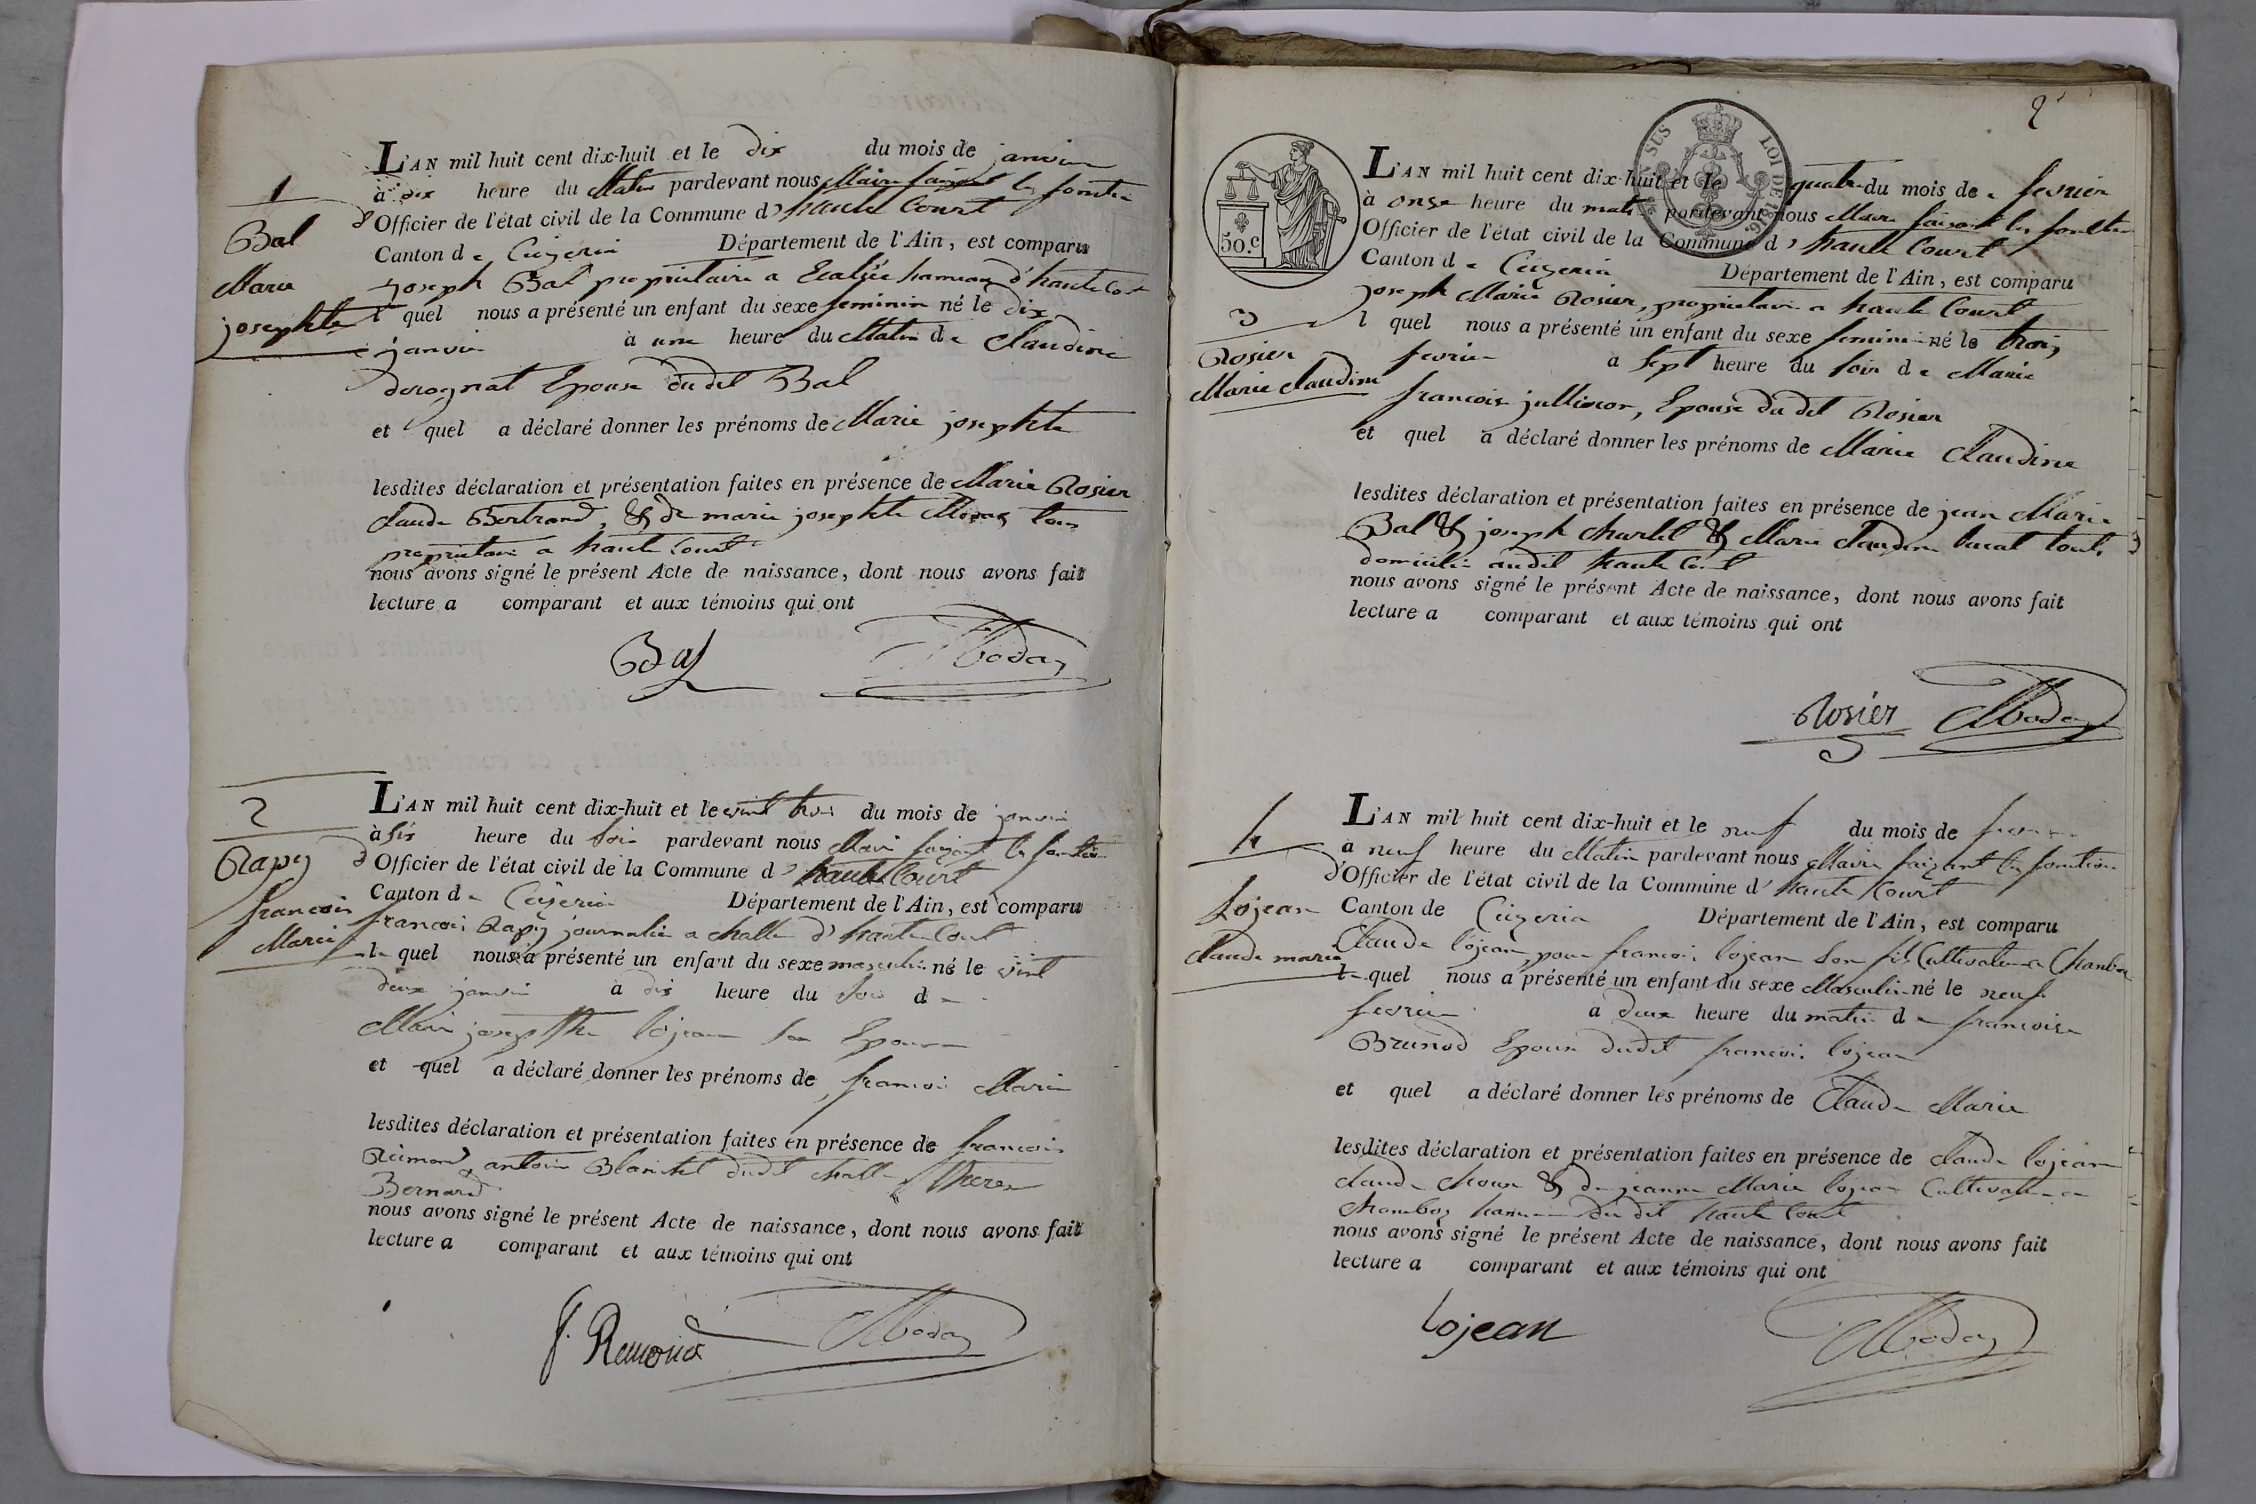 1
Bal
Marie
josephte
L'AN mil huit cent dix-huit et le dix du mois de janvier
à dix heure du Matin pardevant nous Maire faisant les fonction
d'Officier de l'état civil de la Commune d'haute Court
Canton de Ceÿzeria Département de l'Ain, est comparu
joseph Bal proprietaire a hameau d'haute Court
l quel nous a présenté un enfant du sexe feminin né le dix
janvier à une heure du Matin de Claudine
Epouse du dit Bal
et quel a déclaré donner les prénoms de Marie josephte
lesdites déclaration et présentation faites en présence de Marie Rosier
claude Bertrand, & de marie josephte Modas tous
proprietaire a haute Court
nous avons signé le présent Acte de naissance, dont nous avons fait
lecture a comparant et aux témoins qui ont
Bal Modas
2
Rapy
francois
Marie
L'AN mil huit cent dix-huit et le vint trois du mois de janvier
à six heure du Soir pardevant nous Maire faizant les fonction
d'Officier de l'état civil de la Commune d'haute Court
Canton de Ceÿzeria Département de l'Ain, est comparu
francois Rapy journalier a challe d'haute Court
le quel nous a présenté un enfant du sexe masculin né le vint
deux janvier à dix heure du Soir de
Marie josephte lojean son Epouse
et quel a déclaré donner les prénoms de francois Marie
lesdites déclaration et présentation faites en présence de francois
Reimond, antoine Blanchet dudit challe & Therese
Bernard
nous avons signé le présent Acte de naissance, dont nous avons fait
lecture a comparant et aux témoins qui ont
f. Remond Modas
2
TIMBRE SUS LOI DE 1816.
50.c
3
Rosier
Marie claudine
L'AN mil huit cent dix-huit et le quatre du mois de fevrier
à onze heure du mati pardevant nous Maire faisant les fonction
Officier de l'état civil de la Commune d'haute Court
Canton de Ceÿzeria Département de l'Ain, est comparu
joseph Marie Rosier, proprietaire a haute Court
l quel nous a présenté un enfant du sexe feminin né le trois
fevrier à sept heure du soir de Marie
francoise jullieron, Epouse du dit Rosier
et quel a déclaré donner les prénoms de Marie Claudine
lesdites déclaration et présentation faites en présence de jean Marie
Bal & joseph charlet & Marie claudine bucat touts
domicilié audit haute Court
nous avons signé le présent Acte de naissance, dont nous avons fait
lecture a comparant et aux témoins qui ont
Rosier Modas
4
Lojean
claude marie
L'AN mil huit cent dix-huit et le neuf du mois de fevrier
à neuf heure du Matin pardevant nous Maire faizant les fonction
d'Officier de l'état civil de la Commune d'haute Court
Canton de Ceÿzeria Département de l'Ain, est comparu
Claude lojean, pour francois lojean son fils Cultivateur a Chambos
le quel nous a présenté un enfant du sexe Masculin né le neuf
fevrier à deux heure du matin de francoise
Brunod Epouse dudit francois lojean
et quel a déclaré donner les prénoms de Claude Marie
lesdites déclaration et présentation faites en présence de claude lojean
claude & de jeanne Marie lojean Cultivateur a
chambos hameau du dit haute Court
nous avons signé le présent Acte de naissance, dont nous avons fait
lecture a comparant et aux témoins qui ont
lojean Modas